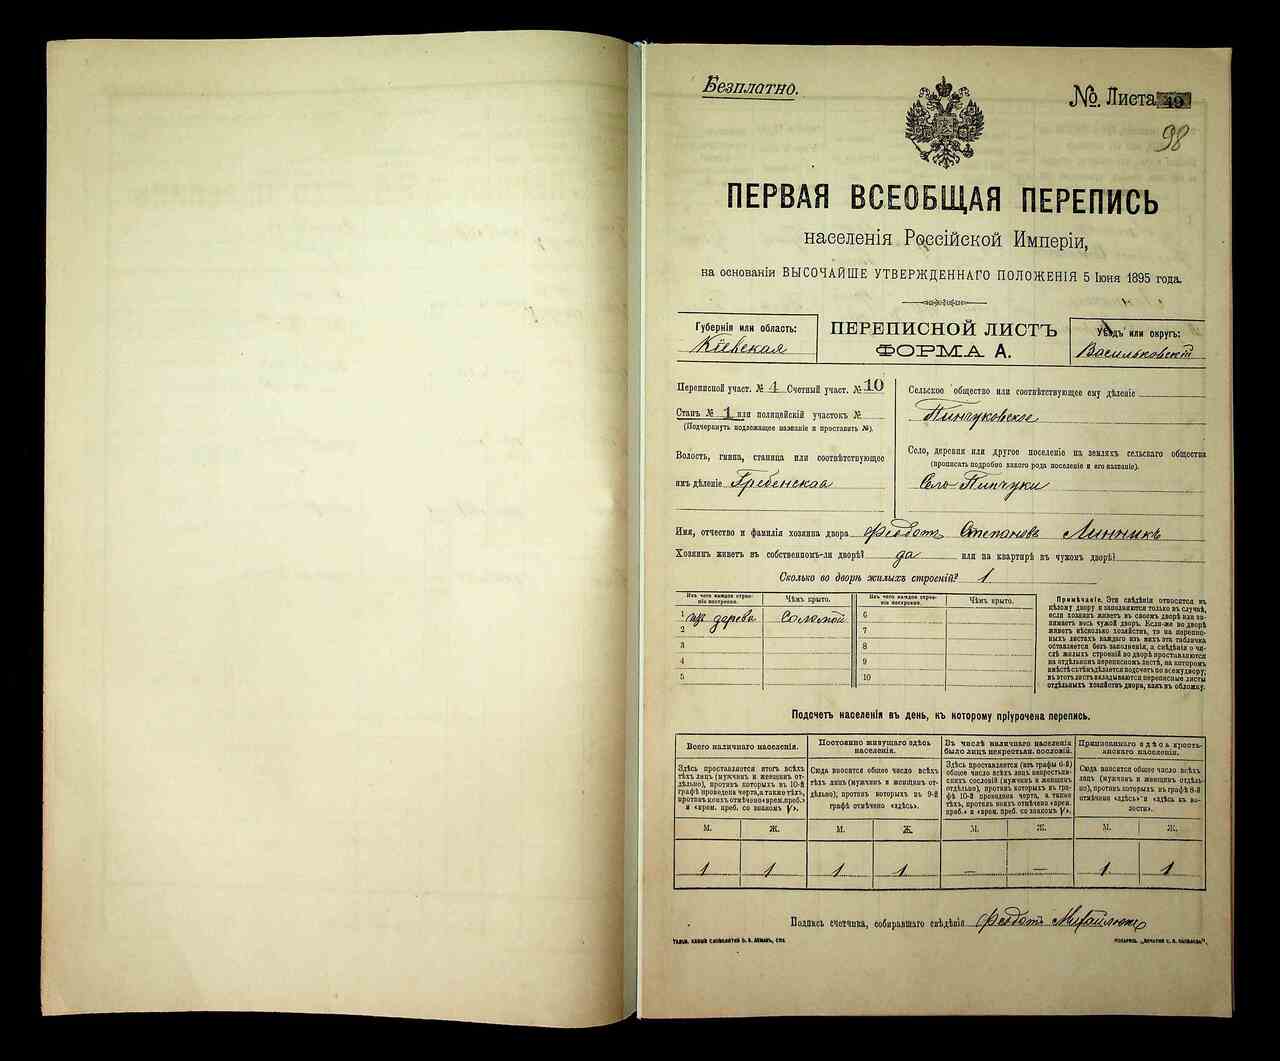 Безплатно.
№. Листа 49
98
ПЕРВАЯ ВСЕОБЩАЯ ПЕРЕПИСЬ
населенія Россійской Имперіи,
на основаніи ВЫСОЧАЙШЕ УТВЕРЖДЕННАГО ПОЛОЖЕНІЯ 5 Іюня 1895 года.
Губернія или область:
Кіевская
ПЕРЕПИСНОЙ ЛИСТЪ
ФОРМА А.
Уѣздъ или округъ:
Васильковскій
Переписной участ. № 4 Счетный участ. № 10
Станъ № 1 или полицейскій участокъ №
(Подчеркнуть подлежащее названіе и проставить №).
Волость, гмина, станица или соотвѣтствующее
имъ дѣленіе Гребенская
Сельское общество или соотвѣтствующее ему дѣленіе
Пинчуковское
Село, деревня или другое поселеніе на земляхъ сельскаго общества
(прописать подробно какого рода поселеніе и его названіе).
Село Пинчуки
Имя, отчество и фамилія хозяина двора Феодотъ Степановъ Линникъ
Хозяинъ живетъ въ собственномъ-ли дворѣ? да или на квартирѣ въ чужомъ дворѣ?
Сколько во дворѣ жилыхъ строеній? 1
Изъ чего каждое строеніе построено. Чѣмъ крыто. Изъ чего каждое строеніе построено. Чѣмъ крыто.
1 изъ дерева соломой 6
2 7
3 8
4 9
5 10
Примѣчаніе. Эти свѣдѣнія относятся къ
цѣлому двору и заполняются только въ случаѣ,
если хозяинъ живетъ въ своемъ дворѣ или занимаетъ
весь чужой дворъ. Если-же во дворѣ
живетъ нѣсколько хозяйствъ, то на переписныхъ
листахъ каждаго изъ нихъ эта табличка
оставляется безъ заполненія, а свѣдѣнія о числѣ
жилыхъ строеній во дворѣ проставляются
на отдѣльномъ переписномъ листѣ, на которомъ
вмѣстѣ съ тѣмъ дѣлается подсчетъ по всему двору;
въ этотъ листъ вкладываются переписные листы
отдѣльныхъ хозяйствъ двора, какъ въ обложку.
Подсчетъ населенія въ день, къ которому пріурочена перепись.
Всего наличнаго населенія.
Здѣсь проставляется итогъ всѣхъ
тѣхъ лицъ (мужчинъ и женщинъ отдѣльно),
противъ которыхъ въ 10-й
графѣ проведена черта, а также тѣхъ,
противъ коихъ отмѣчено «врем. преб.»
и «врем. преб. со знакомъ V».
Постоянно живущаго здѣсь
населенія.
Сюда вносится общее число всѣхъ
тѣхъ лицъ (мужчинъ и женщинъ отдѣльно);
противъ которыхъ въ 9-й
графѣ отмѣчено «здѣсь».
Въ числѣ наличнаго населенія
было лицъ некрестьян. сословій.
Здѣсь проставляется (изъ графы 6-й)
общее число всѣхъ лицъ некрестьянскихъ
сословій (мужчинъ и женщинъ
отдѣльно), противъ которыхъ въ графѣ
10-й проведена черта, а также
тѣхъ, противъ коихъ отмѣчено «врем.
преб.» и «врем. преб. со знакомъ V».
Приписаннаго здѣсь крестьянскаго
населенія.
Сюда вносится общее число всѣхъ
лицъ (мужчинъ и женщинъ отдѣльно),
противъ которыхъ въ графѣ 8-й
отмѣчено «здѣсь» и «здѣсь въ волости».
М. Ж. М. Ж. М. Ж. М. Ж.
1 1 1 1 — — 1 1
Подпись счетчика, собиравшаго свѣдѣнія Феодотъ Михайлюкъ